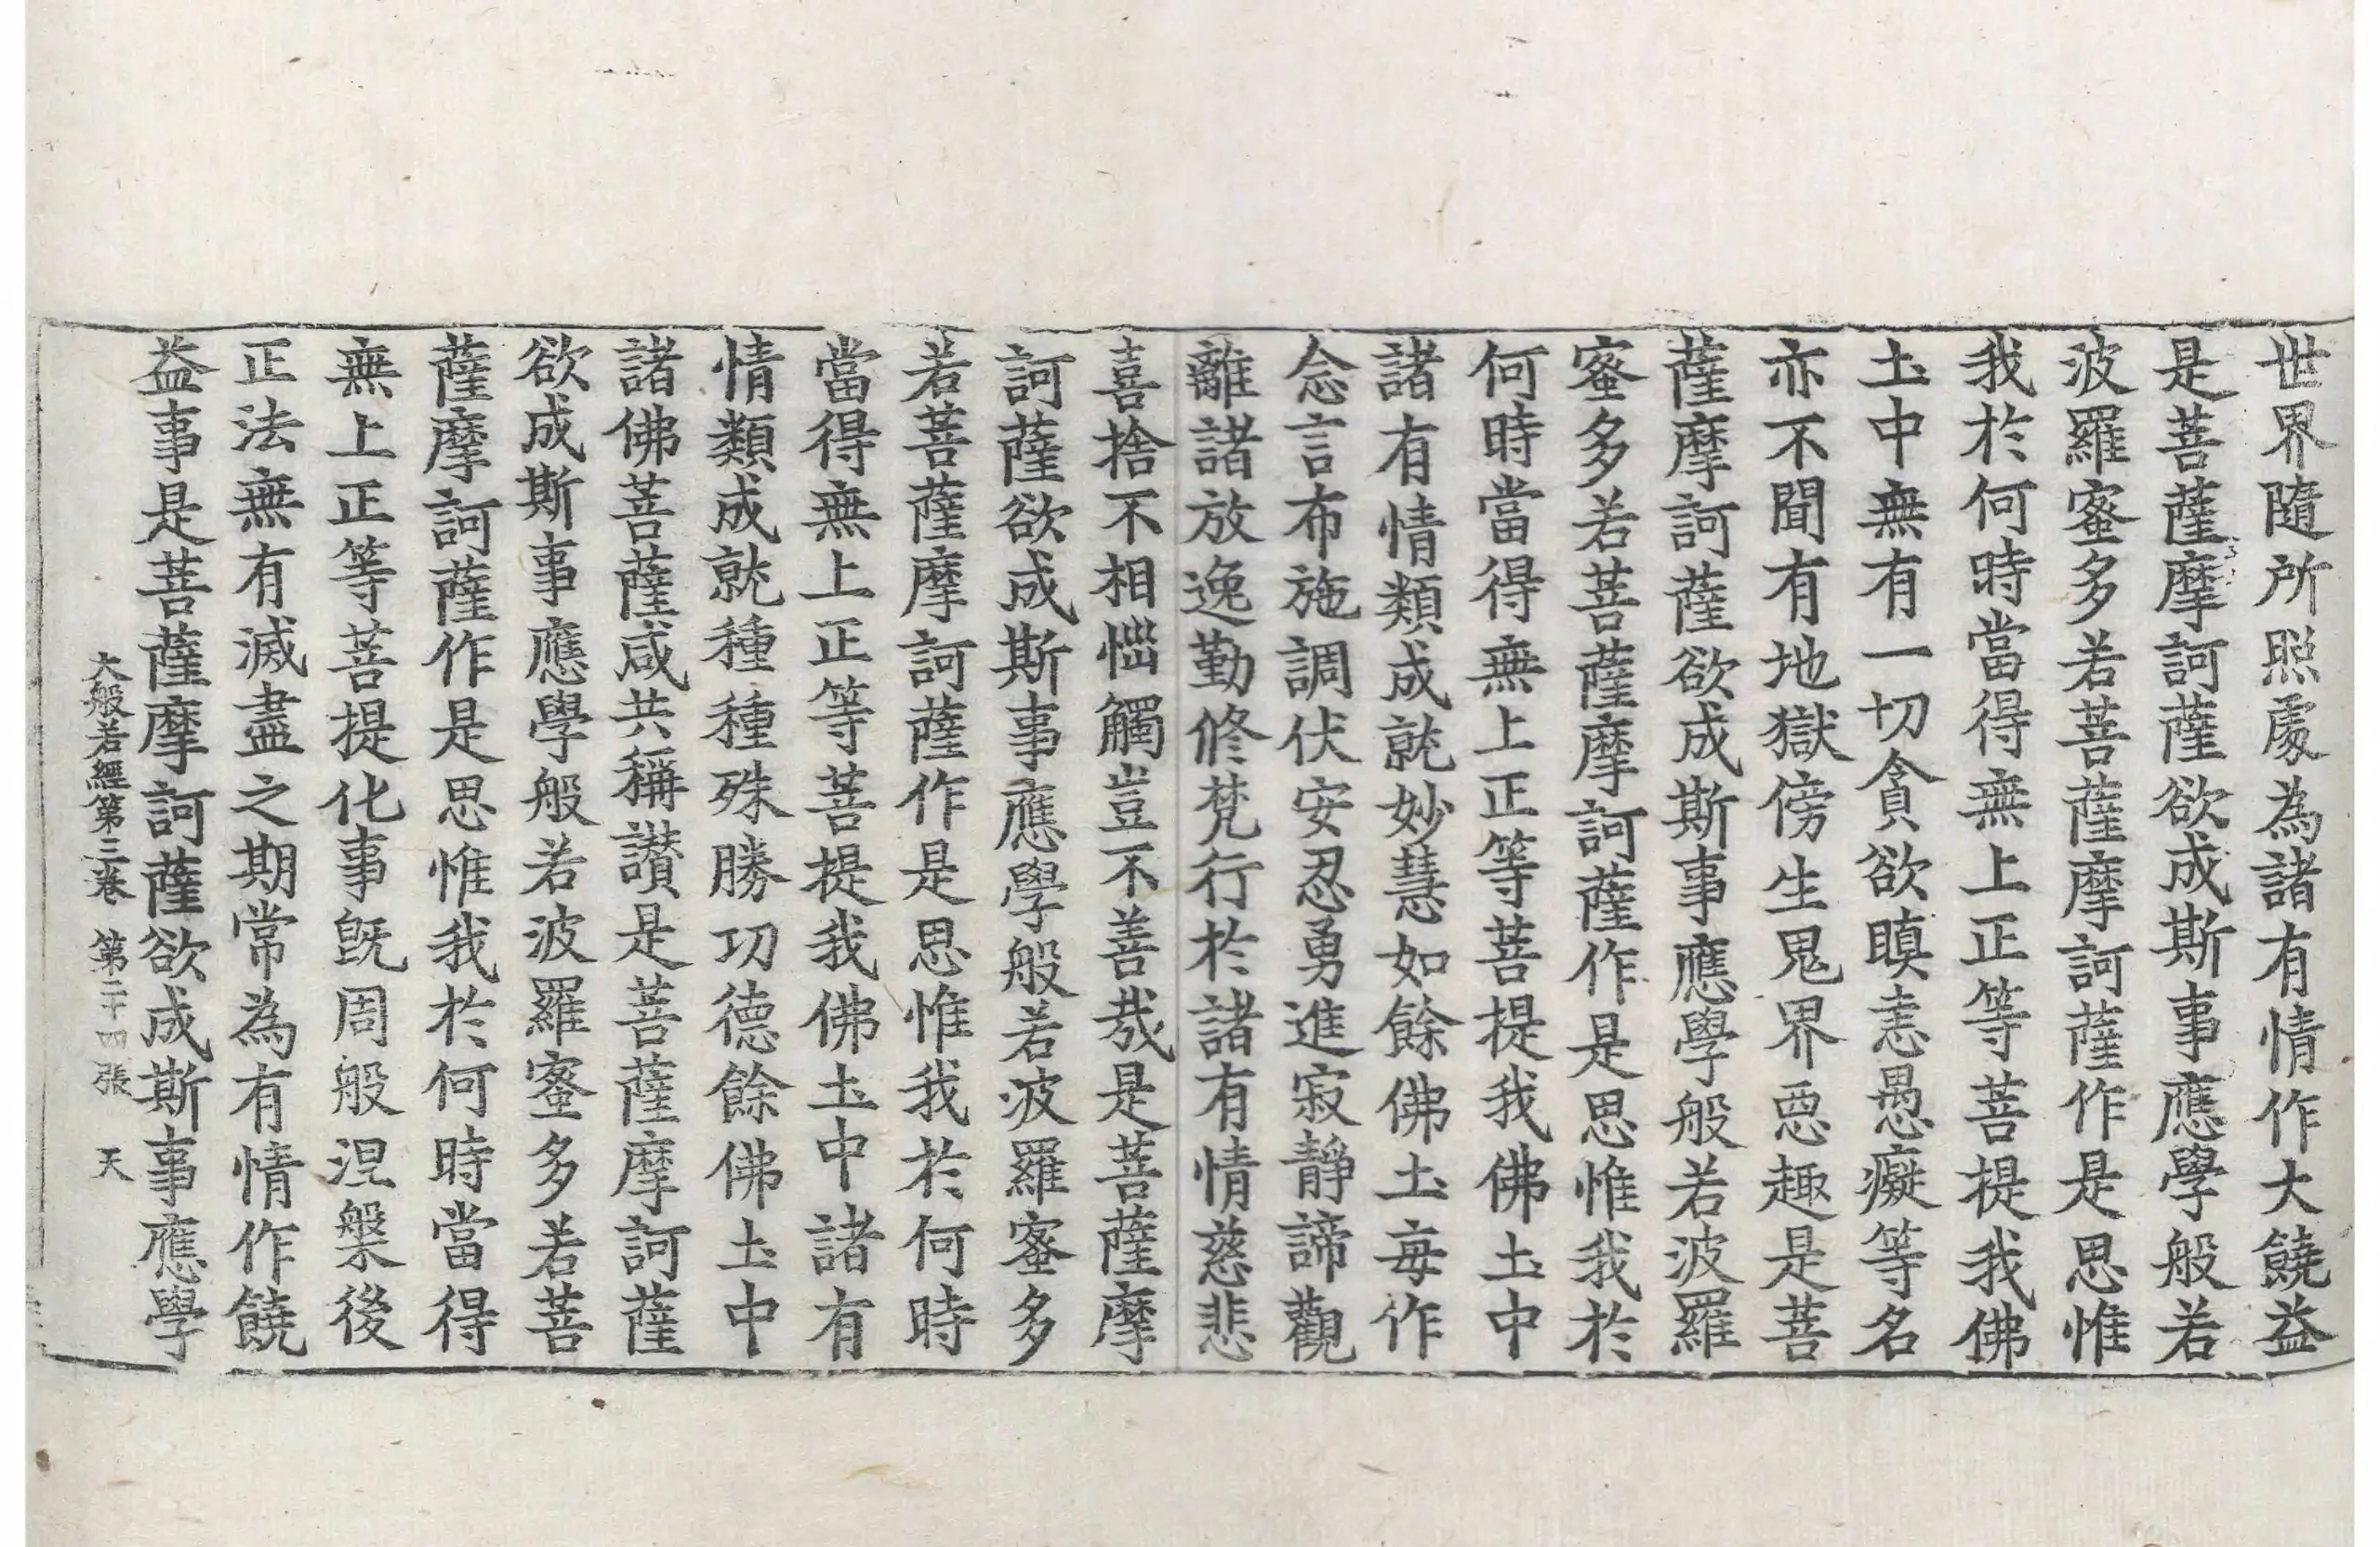 世界隨所照處為諸有情作大饒益
是菩薩摩訶薩欲成斯事應學般若
波羅蜜多若菩薩摩訶薩作是思惟
我於何時當得無上正等菩提我佛
土中無有一切貪欲瞋恚愚癡等名
亦不聞有地獄傍生鬼界惡趣是菩
薩摩訶薩欲成斯事應學般若波羅
蜜多若菩薩摩訶薩作是思惟我於
何時當得無上正等菩提我佛土中
諸有情類成就妙慧如餘佛土每作
念言布施調伏安忍勇進寂靜諦觀
離諸放逸勤修梵行於諸有情慈悲
喜捨不相惱觸豈不善哉是菩薩摩
訶薩欲成斯事應學般若波羅蜜多
若菩薩摩訶薩作是思惟我於何時
當得無上正等菩提我佛土中諸有
情類成就種種殊勝功德餘佛土中
諸佛菩薩咸共稱讚是菩薩摩訶薩
欲成斯事應學般若波羅蜜多若菩
薩摩訶薩作是思惟我於何時當得
無上正等菩提化事既周般涅槃後
正法無有滅盡之期常為有情作饒
益事是菩薩摩訶薩欲成斯事應學
大般若經第三卷 第二十四張 天